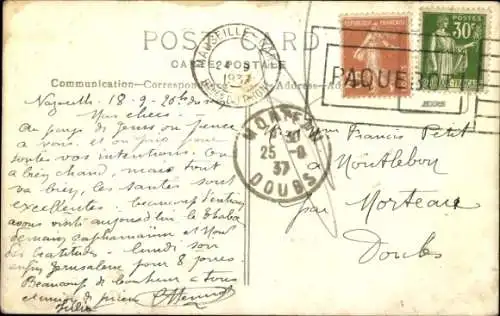 POST CARD
CARTE POSTALE
Communication — Correspondence
Address — Adresse
MARSEILLE
24 9
1937
PAQUEBOT
RÉPUBLIQUE FRANÇAISE
POSTES
30c
MORTEAU
25 - 9
37
DOUBS
Nazareth 18-9-
Mes chers
Au pays de Jésus on pense
à vous. et on prie pour
toutes vos intentions. On
a bien chaud, mais tout
va bien, les santés sont
excellentes. beaucoup
avons visité aujourd'hui le Thabor
demain Capharnaüm et Mont
des béatitudes — lundi soir
enfin Jérusalem pour 8 jours
Beaucoup de bonheur à tous
et union de prières
Julia
Francis Petit
à Montlebon
par Morteau
Doubs